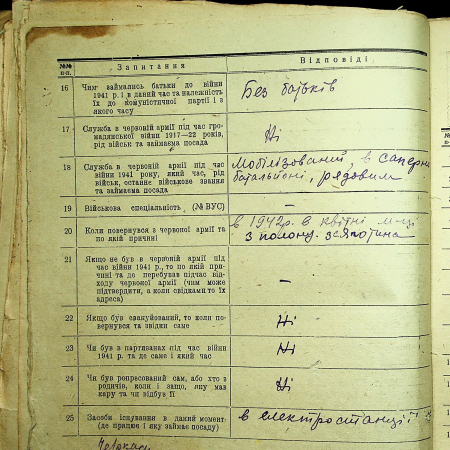 №№ п-п.
Запитання
Відповіді
16 Чим займались батьки до війни
1941 р. і в даний час та належність
їх до комуністичної партії і з
якого часу
Без батьків
17 Служба в червоній армії під час гро-
мадянської війни 1917—22 років,
рід військ та займаєма посада
Ні
18 Служба в червоній армії під час
війни 1941 року, який час, рід
військ, останнє військове звання
та займаєма посада
Мобілізований, в саперн
батальйоні, рядовим
19 Військова спеціальність (№ ВУС)
—
20 Коли повернувся з червоної армії та
по якій причині
в 1942р. в квітні м-ці
з полону.
21 Якщо не був в червоній армії під
час війни 1941 р., то по якій при-
чині та де перебував підчас від-
ходу червоної армії (чим може
підтвердити, а коли свідками то їх
адреса)
—
22 Якщо був евакуйований, то коли по-
вернувся та звідки саме
Ні
23 Чи був в партизанах під час війни
1941 р. та де саме і який час
Ні
24 Чи був репресований сам, або хто з
родичів, коли і защо, яку мав
кару та чи відбув її
Ні
25 Засоби існування в даний момент
(де працює і яку займає посаду)
в електростанції